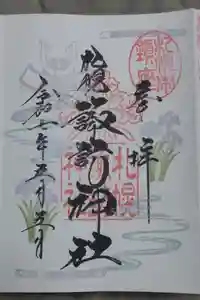 奉拝
札幌
諏訪神社
令和七年五月三日
札幌
神社